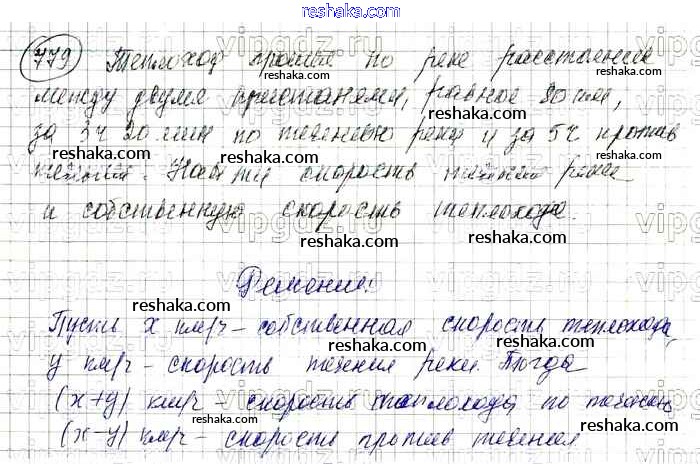 reshaka.com
779 Теплоход прошел по реке расстояние
между двумя пристанями, равное 80 км,
за 3ч 20 мин по течению реки и за 5ч против
течения. Найти скорость течения реки
и собственную скорость теплохода.
Решение:
Пусть x км/ч – собственная скорость теплохода,
y км/ч – скорость течения реки. Тогда
(x+y) км/ч – скорость теплохода по течению
(x–y) км/ч – скорость против течения